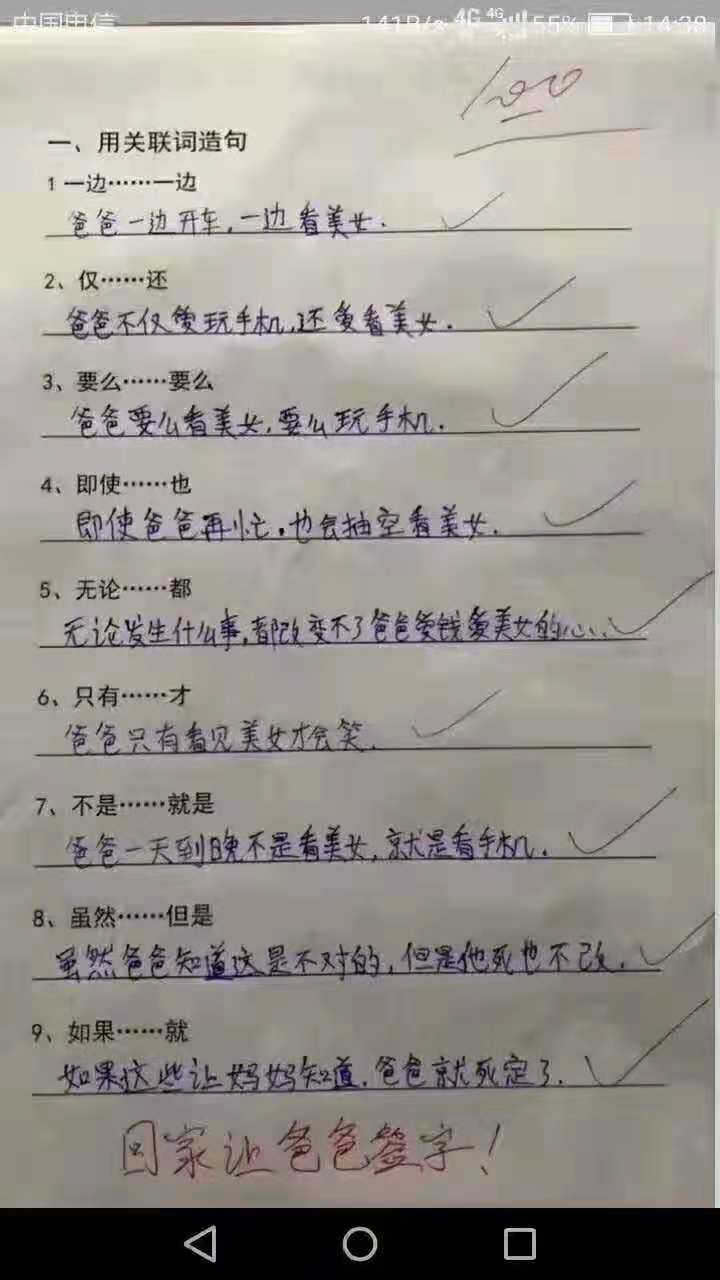 中国电信 4G 4G 55% 14:38
100
一、用关联词造句
1 一边……一边
爸爸一边开车,一边看美女.
2、仅……还
爸爸不仅爱玩手机,还爱看美女.
3、要么……要么
爸爸要么看美女,要么玩手机.
4、即使……也
即使爸爸再忙,也会抽空看美女.
5、无论……都
无论发生什么事,都改变不了爸爸爱钱爱美女的心...
6、只有……才
爸爸只有看见美女才会笑.
7、不是……就是
爸爸一天到晚不是看美女,就是看手机.
8、虽然……但是
虽然爸爸知道这是不对的,但是他死也不改.
9、如果……就
如果这些让妈妈知道,爸爸就死定了.
回家让爸爸签字!